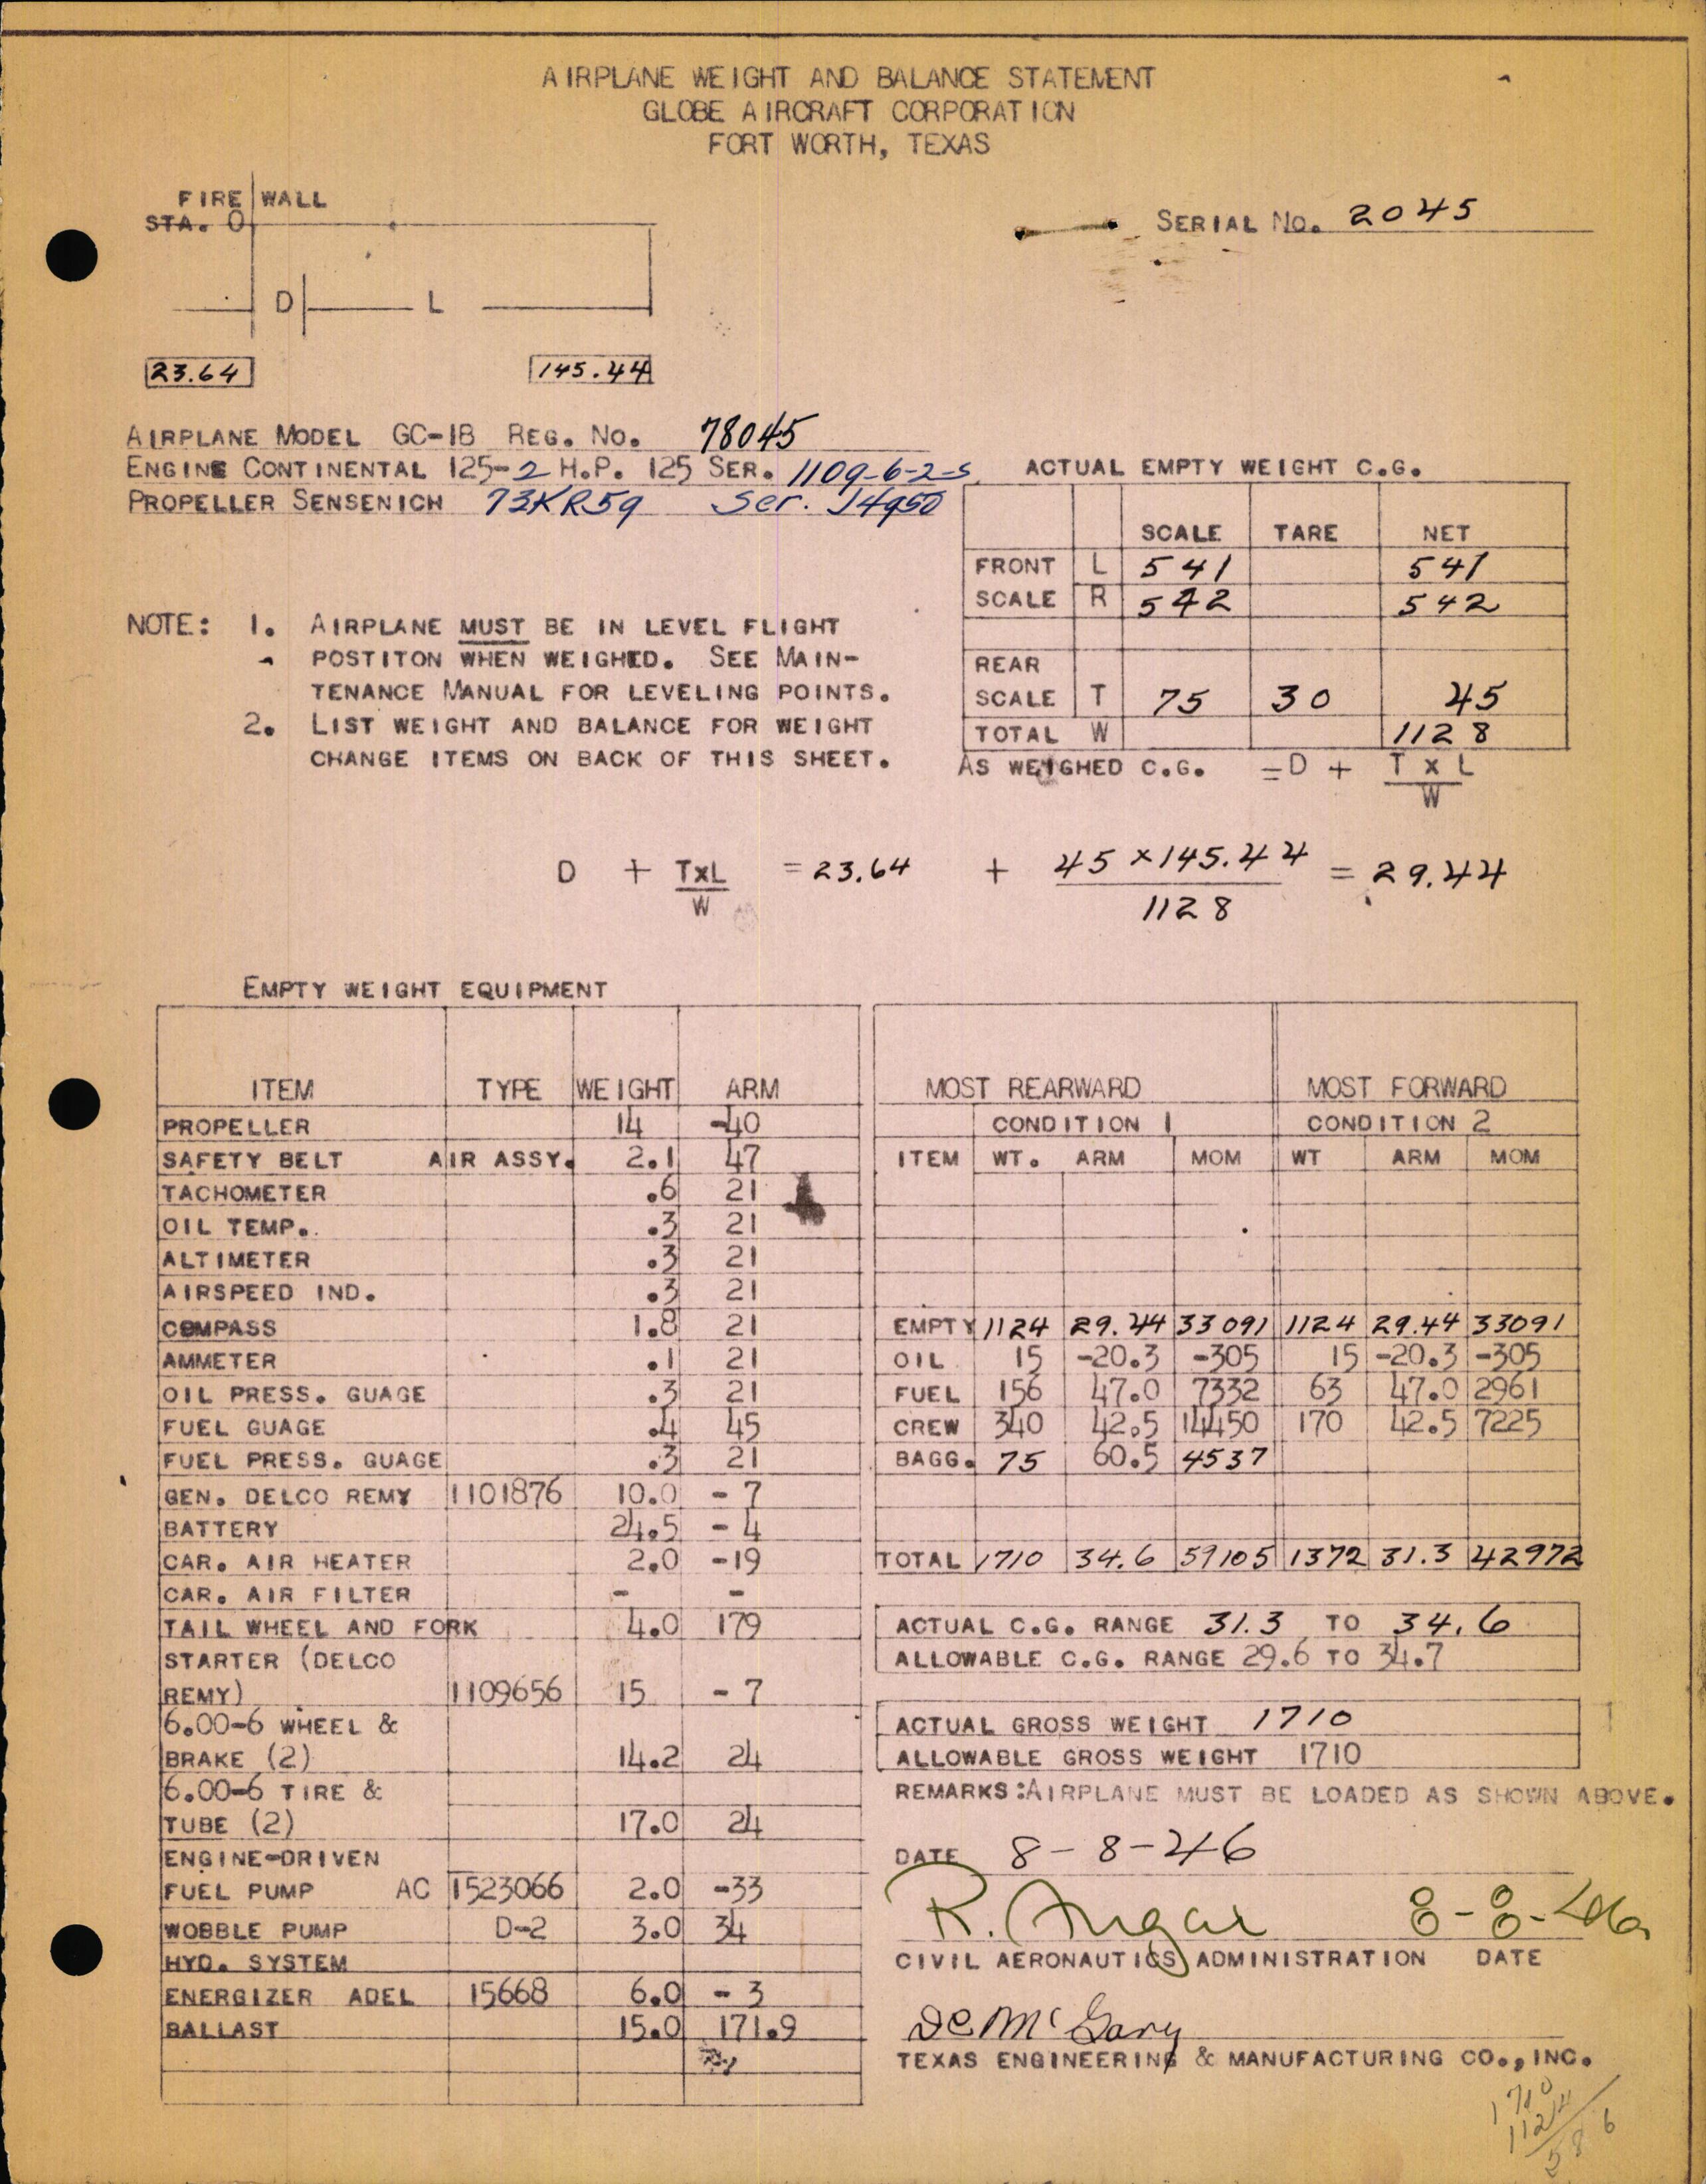 AIRPLANE WEIGHT AND BALANCE STATEMENT
GLOBE AIRCRAFT CORPORATION
FORT WORTH, TEXAS
FIRE WALL
STA. 0
SERIAL NO. 2045
D L
23.64 145.44
AIRPLANE MODEL GC-1B REG. NO. 78045
ENGINE CONTINENTAL 125-2 H.P. 125 SER. 1109-6-2-S
PROPELLER SENSENICH 73KR59 Ser. 14950
ACTUAL EMPTY WEIGHT C.G.
SCALE TARE NET
FRONT L 541 541
SCALE R 542 542
REAR
SCALE T 75 30 45
TOTAL W 1128
AS WEIGHED C.G. =D + T x L
W
NOTE: 1. AIRPLANE MUST BE IN LEVEL FLIGHT
POSTITON WHEN WEIGHED. SEE MAIN-
TENANCE MANUAL FOR LEVELING POINTS.
2. LIST WEIGHT AND BALANCE FOR WEIGHT
CHANGE ITEMS ON BACK OF THIS SHEET.
D + TxL = 23.64 + 45 x 145.44 = 29.44
W 1128
EMPTY WEIGHT EQUIPMENT
ITEM TYPE WEIGHT ARM
PROPELLER 14 -40
SAFETY BELT AIR ASSY. 2.1 47
TACHOMETER .6 21
OIL TEMP. .3 21
ALTIMETER .3 21
AIRSPEED IND. .3 21
COMPASS 1.8 21
AMMETER .1 21
OIL PRESS. GUAGE .3 21
FUEL GUAGE .4 45
FUEL PRESS. GUAGE .3 21
GEN. DELCO REMY 1101876 10.0 - 7
BATTERY 24.5 - 4
CAR. AIR HEATER 2.0 -19
CAR. AIR FILTER - -
TAIL WHEEL AND FORK 4.0 179
STARTER (DELCO
REMY) 1109656 15 - 7
6.00-6 WHEEL &
BRAKE (2) 14.2 24
6.00-6 TIRE &
TUBE (2) 17.0 24
ENGINE-DRIVEN
FUEL PUMP AC 1523066 2.0 -33
WOBBLE PUMP D-2 3.0 34
HYD. SYSTEM
ENERGIZER ADEL 15668 6.0 - 3
BALLAST 15.0 171.9
MOST REARWARD MOST FORWARD
CONDITION 1 CONDITION 2
ITEM WT. ARM MOM WT ARM MOM
EMPTY 1124 29.44 33091 1124 29.44 33091
OIL 15 -20.3 -305 15 -20.3 -305
FUEL 156 47.0 7332 63 47.0 2961
CREW 340 42.5 14450 170 42.5 7225
BAGG. 75 60.5 4537
TOTAL 1710 34.6 59105 1372 31.3 42972
ACTUAL C.G. RANGE 31.3 TO 34.6
ALLOWABLE C.G. RANGE 29.6 TO 34.7
ACTUAL GROSS WEIGHT 1710
ALLOWABLE GROSS WEIGHT 1710
REMARKS:AIRPLANE MUST BE LOADED AS SHOWN ABOVE.
DATE 8-8-46
R. 8-8-46
CIVIL AERONAUTICS ADMINISTRATION DATE
McGary
TEXAS ENGINEERING & MANUFACTURING CO., INC.
1710
1124
586